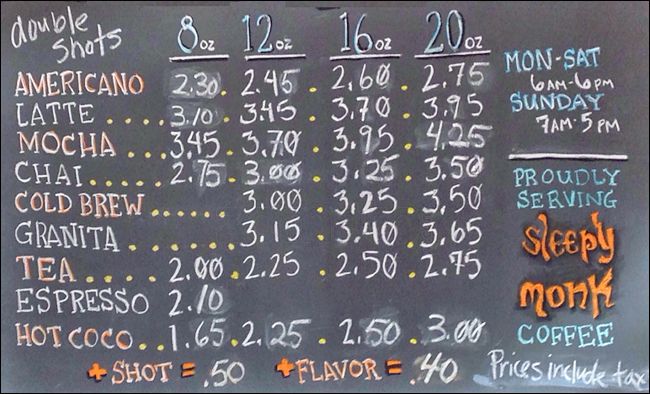 double shots 8oz 12oz 16oz 20oz
AMERICANO 2.30 . 2.45 . 2.60 . 2.75
LATTE .... 3.10 . 3.45 . 3.70 . 3.95
MOCHA .... 3.45 . 3.70 . 3.95 . 4.25
CHAI ..... 2.75 . 3.00 . 3.25 . 3.50
COLD BREW ...... 3.00 . 3.25 . 3.50
GRANITA ..... 3.15 . 3.40 . 3.65
TEA ..... 2.00 . 2.25 . 2.50 . 2.75
ESPRESSO 2.10
HOT COCO .. 1.65 . 2.25 . 2.50 . 3.00
+ SHOT = .50 + FLAVOR = .40
MON-SAT
6AM-6PM
SUNDAY
7AM-5PM
PROUDLY
SERVING
sleepy
monk
COFFEE
Prices include tax